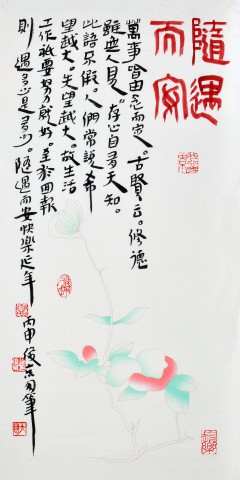 隨遇
而安
萬事皆由天而定。古賢云。修德
雖無人見。存心自有天知。
此語不假。人們常說希
望越大。失望越大。故生活
工作祇要努力就好。至於回報
則遇多少是多少。隨遇而安快樂延年
丙申 筆